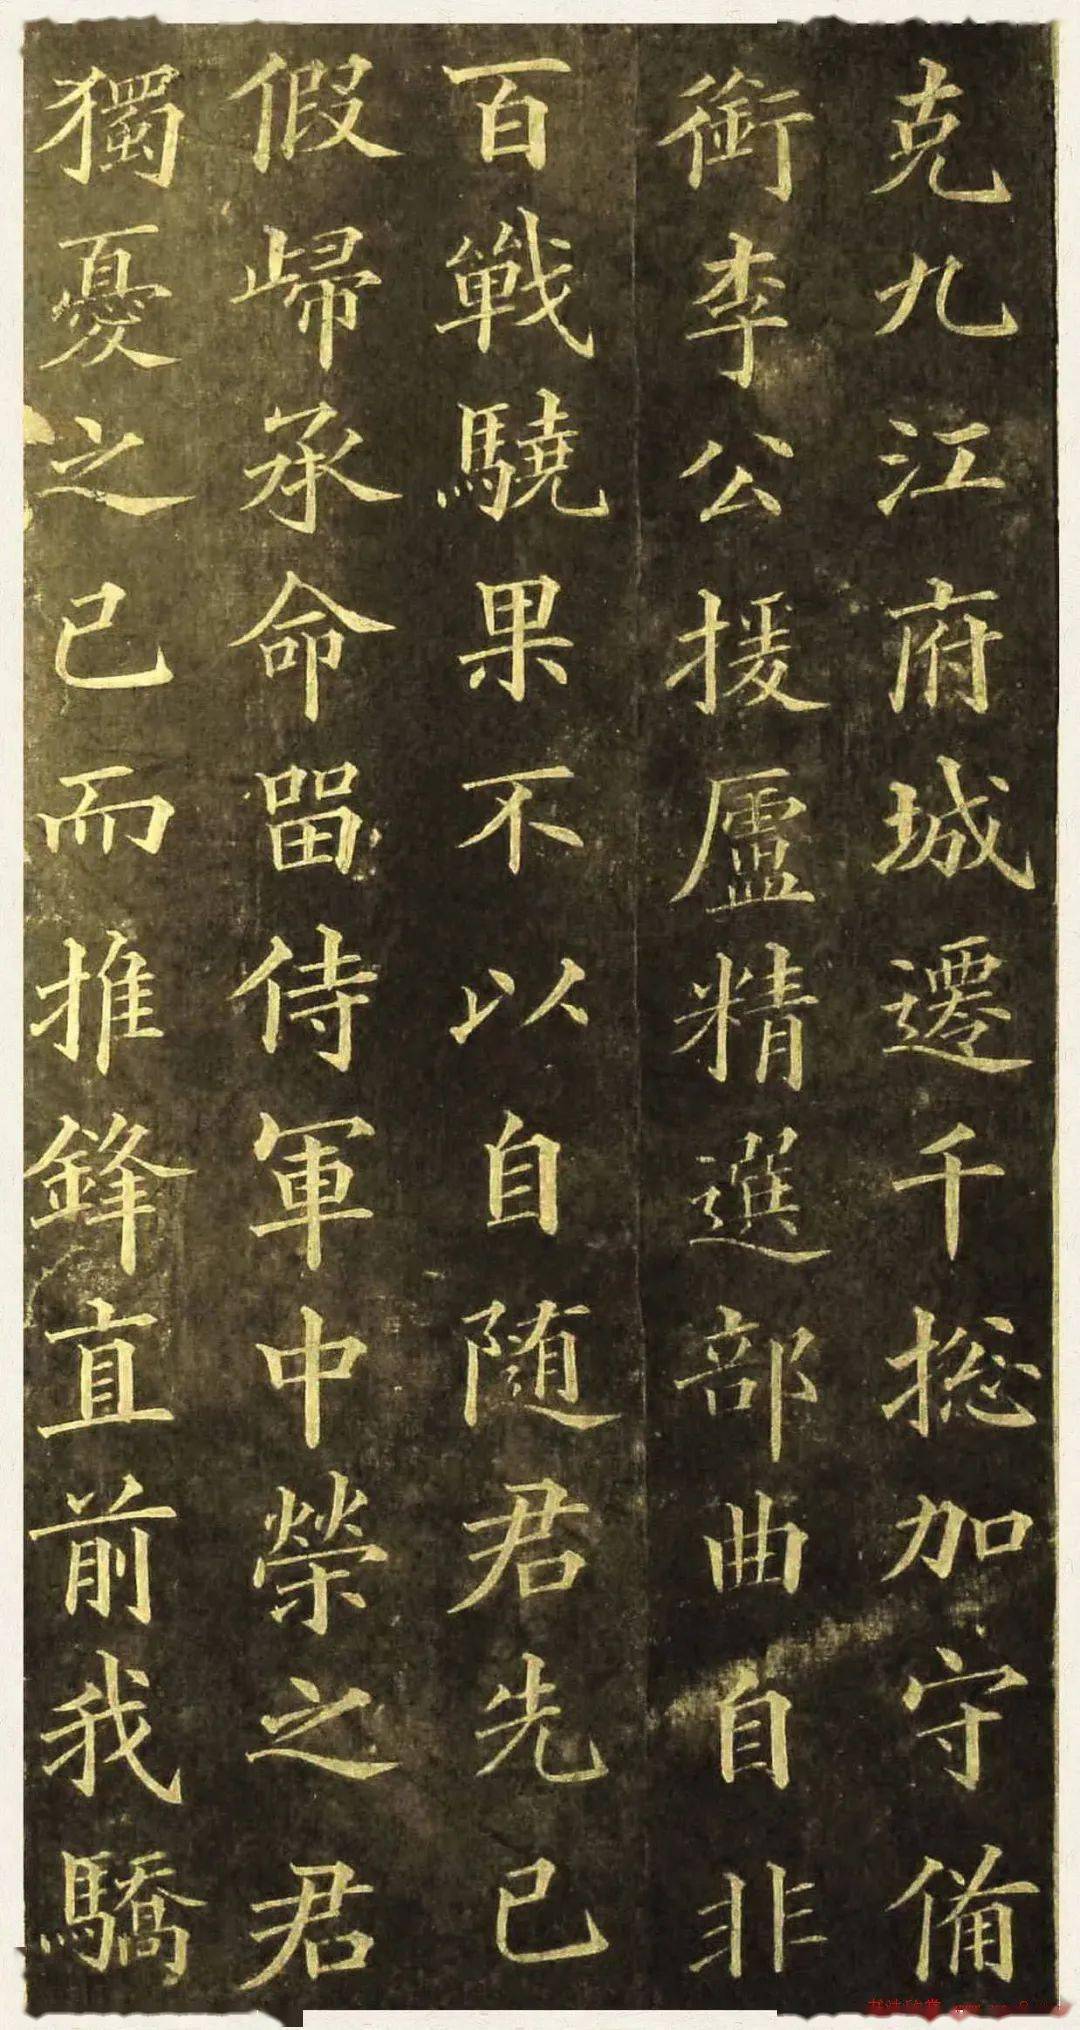 克九江府城遷千総加守俻
銜李公援廬精選部曲自非
百戰驍果不以自随君先已
假歸承命畱侍軍中榮之君
獨憂之已而推鋒直前我驕